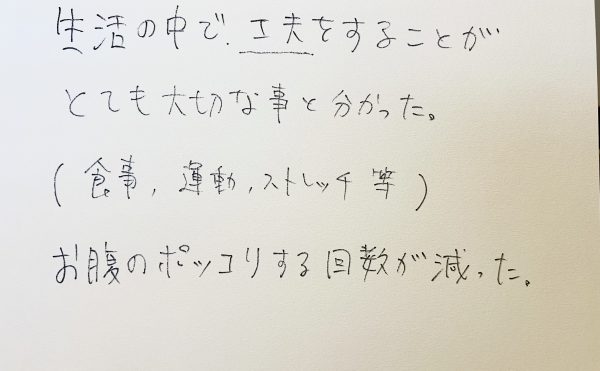 生活の中で、工夫をすることが
とても大切な事と分かった。
(食事, 運動, ストレッチ 等)
お腹のポッコリする回数が減った。